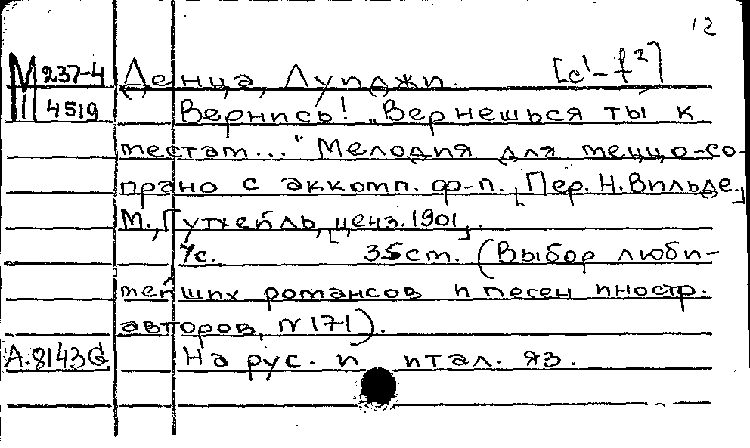 12
М 237-4 Денца, Луиджи. [c¹-f²]
4519 Вернись! „Вернешься ты к
местам..." Мелодия для меццо-со-
прано с аккомп. ф-п. [Пер. Н. Вильде.]
М., Гутхейль, [ценз. 1901].
7с. 35 см. (Выбор люби-
мейших романсов и песен иностр.
авторов, № 171).
А.8143G На рус. и итал. яз.